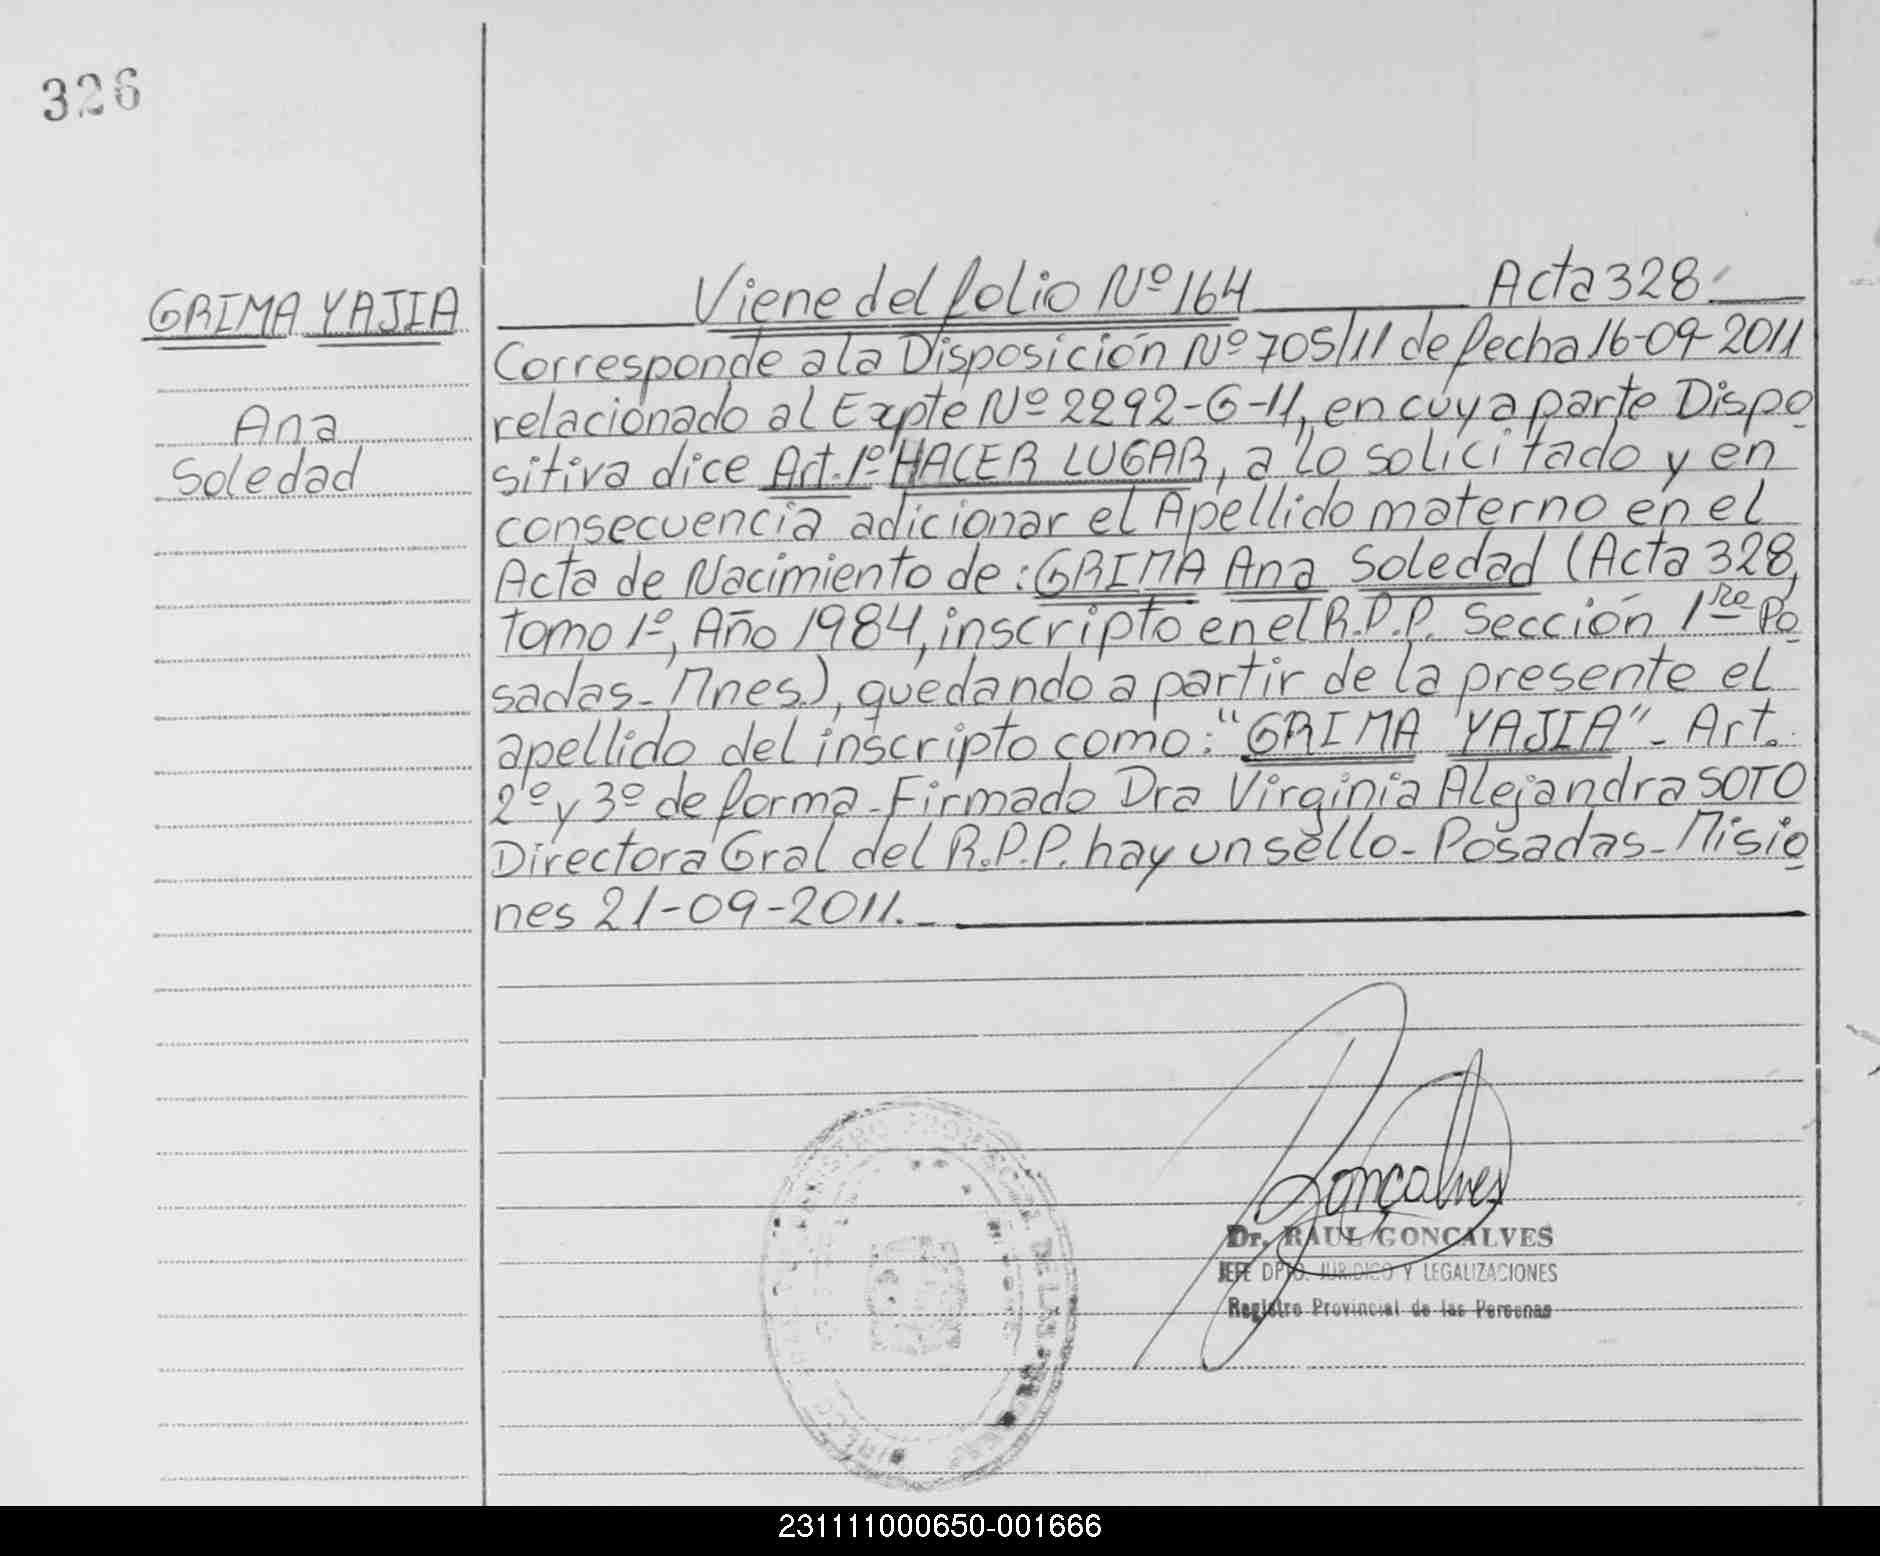 326
GRIMA YAJIA
Ana
Soledad
Viene del folio Nº 164 Acta 328
Corresponde a la Disposición Nº 705/11 de fecha 16-09-2011
relacionado al Expte Nº 2292-G-11, en cuya parte Dispo
sitiva dice Art. 1º HACER LUGAR, a lo solicitado y en
consecuencia adicionar el Apellido materno en el
Acta de Nacimiento de: GRIMA Ana Soledad (Acta 328,
Tomo 1º, Año 1984, inscripto en el R.P.P. Sección 1ra Po
sadas-Mnes.), quedando a partir de la presente el
apellido del inscripto como: "GRIMA YAJIA"- Art.
2º y 3º de forma-Firmado Dra Virginia Alejandra SOTO
Directora Gral del R.P.P. hay un sello-Posadas-Misio
nes 21-09-2011.-
Gonçalves
Dr. RAUL GONCALVES
JEFE DPTO. JURIDICO Y LEGALIZACIONES
Registro Provincial de las Personas
REGISTRO PROVINCIAL DE LAS PERSONAS
231111000650-001666